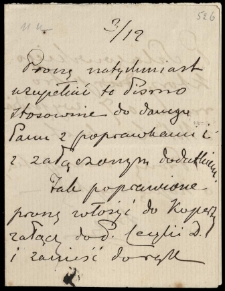 526
3/12
Proszę natychmiast
uzupełnić to pismo
stosownie do danego
Panu z poprawkami i
z załączonym dodatkiem.
Tak poprawione
proszę włożyć do Koperty
załącz. do P. Cecylii D.
i zanieść do rąk